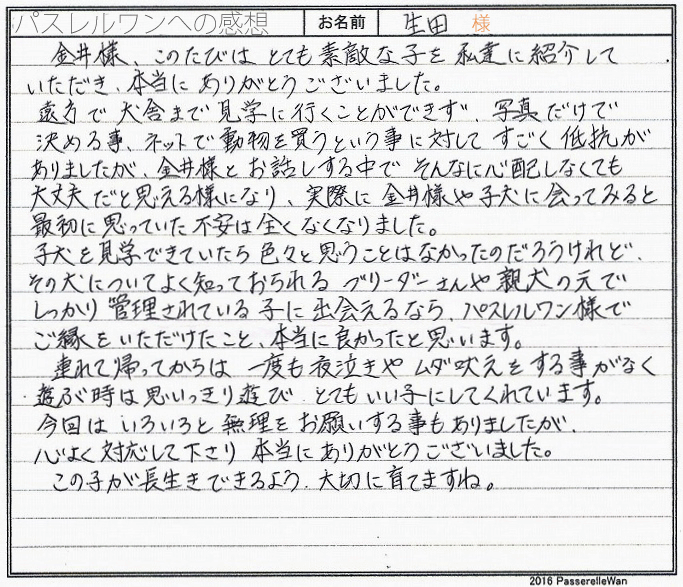 パスレルワンへの感想 お名前 生田 様
金井様、このたびは とても素敵な子を 私達に紹介して
いただき、本当に ありがとうございました。
遠方で 犬舎まで 見学に 行くことができず、写真だけで
決める事、ネットで動物を買うという事に対して すごく 低抗が
ありましたが、金井様と お話しする中で そんなに心配しなくても
大丈夫だと思える様になり、実際に 金井様や子犬に会ってみると
最初に思っていた不安は全くなくなりました。
子犬を見学できていたら色々と思うことはなかったのだろうけれど、
その犬についてよく知っておられる ブリーダーさんや親犬の元で
しっかり管理されている子に出会えるなら、パスレルワン様で
ご縁をいただけたこと、本当に良かったと思います。
連れて帰ってからは 一度も夜泣きや ムダ吠えをする事がなく
遊ぶ時は思いっきり遊び とてもいい子にしてくれています。
今回は いろいろと 無理を お願いする事もありましたが、
心よく対応して下さり 本当にありがとうございました。
この子が長生きできるよう、大切に育てますね。
2016 PasserelleWan